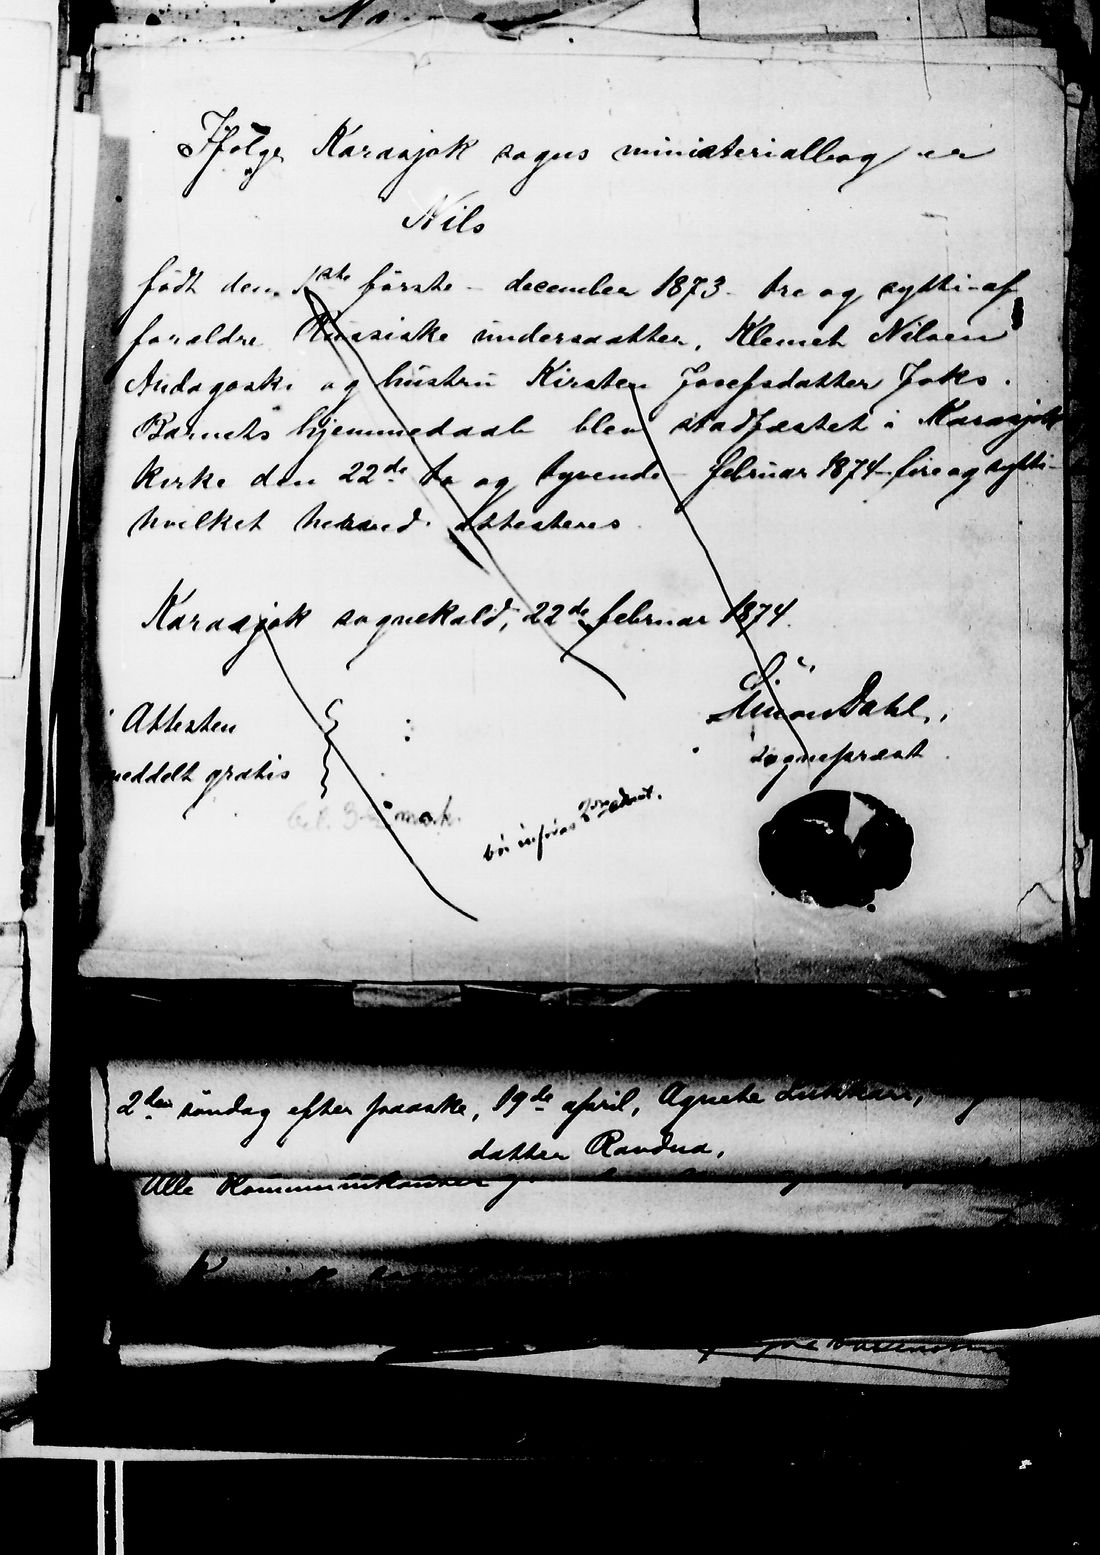 Ifølge Karasjok sogns ministerialbog er
Nils
født den 1ste første – december 1873 – tre og sytti – af
forældre Russiske undersaatter, Klemet Nilsen
og hustru Kirsten Josefsdatter Joks.
Barnets hjemmedaab blev stadfæstet i Karasjok
kirke den 22de to og tyvende – februar 1874 – fire og sytti –
hvilket herved attesteres
Karasjok sognekald, 22de februar 1874.
Simon Dahl,
Attesten
sogneprest
meddelt gratis
mark.
2den søndag efter paaske, 19de april, Agnethe Lukkari,
datter Ravdna.
Alle Kommunikanter